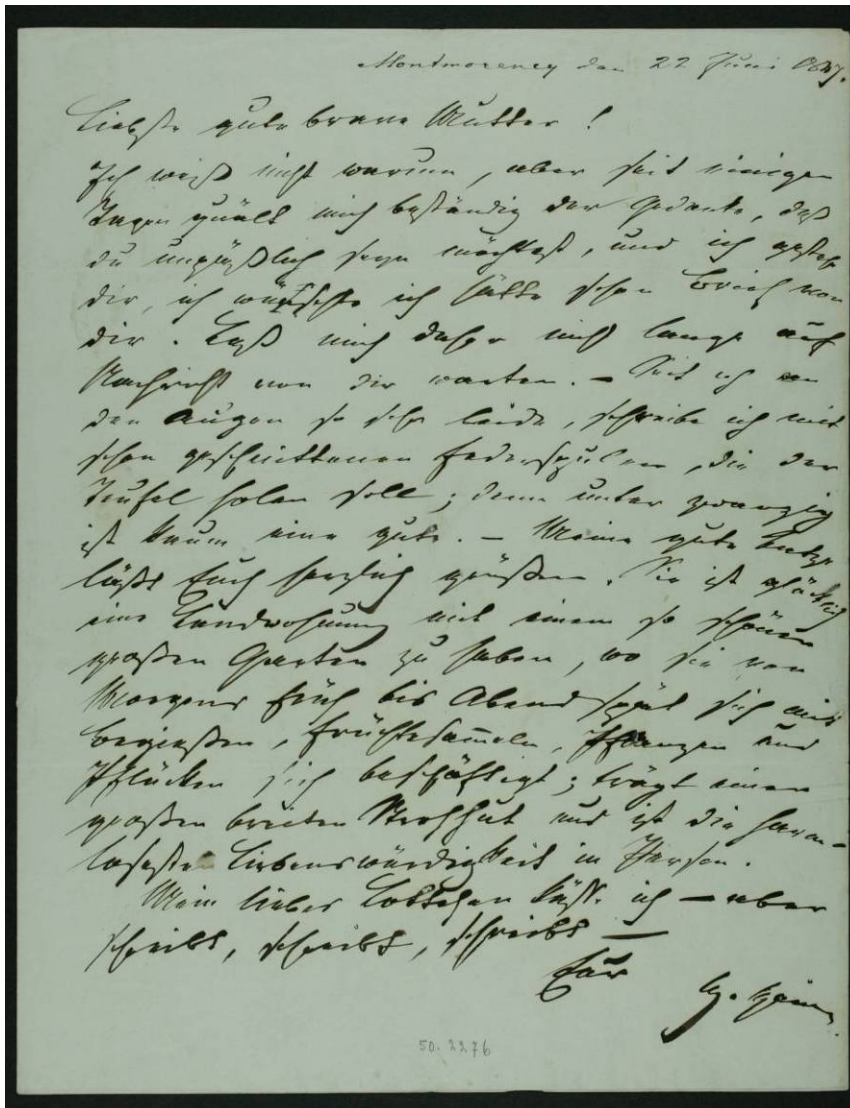 Montmorency den 22 Juni 1847.
Liebste gute brave Mutter !
Ich weiß nicht warum, aber seit einigen
Tagen quält mich beständig der Gedanke, daß
du unpäßlich seyn möchtest, und ich gestehe
dir, ich wünschte ich hätte schon Brief von
dir. Laß mich daher nicht lange auf
Nachricht von dir warten. – Seit ich an
den Augen so sehr leide, schreibe ich mit
schon geschnittenen Federspulen, die der
Teufel holen soll; denn unter zwanzig
ist kaum eine gute. – Meine gute
läßt Euch herzlich grüßen. Sie ist glücklich
eine Landwohnung mit einem so schönen
großen Garten zu haben, wo sie von
Morgens früh bis Abend spät sich mit
begießen, Früchtesam̄eln, Pflanzen und
Pflücken sich beschäftigt; trägt einen
großen breiten Strohhut und ist die harm-
loseste Liebenswürdigkeit in Person.
Mein liebes Lottchen küsse ich – aber
schreibt, schreibt, schreibt –
Eur
H. Heine.
50.2276